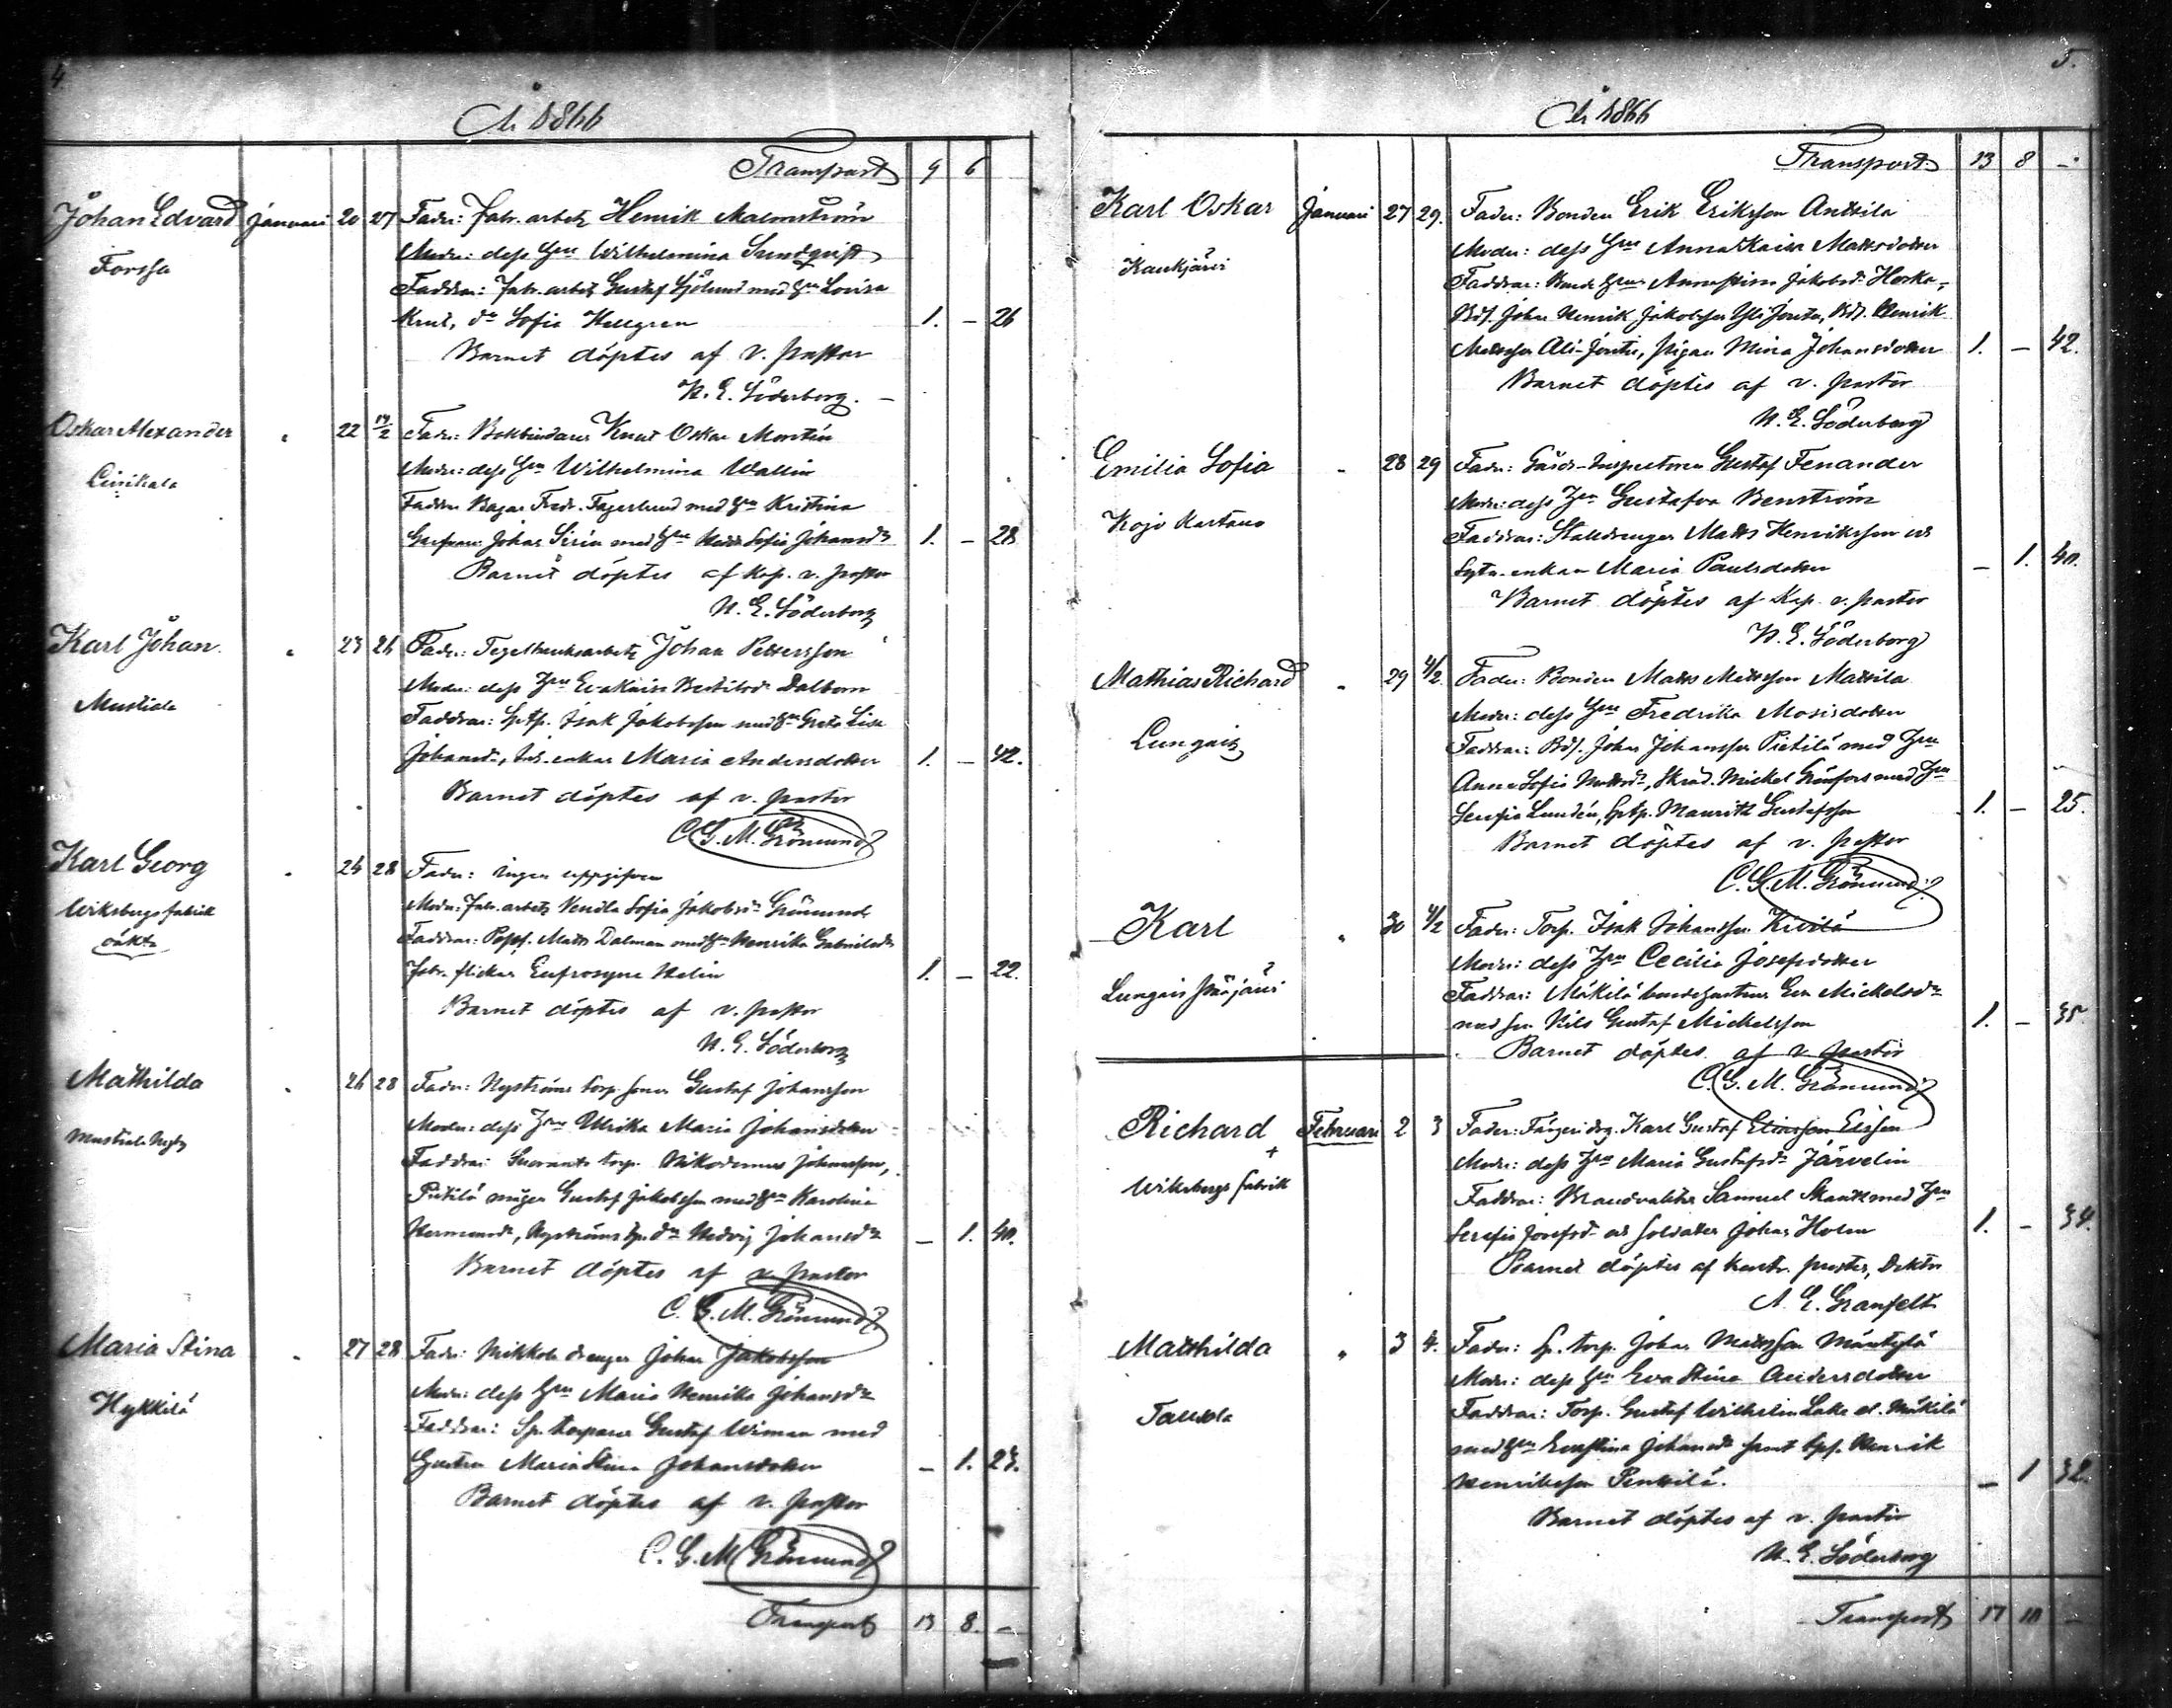 4.
År 1866
Transport 9 6
Johan Edvard Januari 20 27 Fader: fabr. arbetn Henrik Malmström
Forssa
Moder: dess hu Wilhelmina Sundqvist
Faddrar: fabr. arbet. Gustaf Sjölund med hu Lovisa
Knut, dr Sofia Hellgren 1. – 26
Barnet döptes af v. pastor
N. E. Söderborg.
Oskar Alexander " 22 14/2 Fader: Bokbindaren Knut Oskar Montin
Linikkala
Moder: dess hu Wilhelmina Wallin
Faddrar Bagar Fredr. Fagerlund med hu Kristina
Johan Sirén med hu Hedda Sofia Johansdr 1. – 28
Barnet döptes af kap. v. pastor
N. E. Söderborg
Karl Johan " 23 26 Fader: Tegelbruksarbet. Johan Pettersson
Mustiala
Moder: dess hu Eva Kaisa Dalbom
Faddrar: Sptp. Isak Jakobsson med hu Greta Lisa
Johansdr, enkan Maria Andersdotter 1. – 42.
Barnet döptes af v. pastor
C. G. M. Grönmund
Karl Georg " 24 28 Fader: ingen uppgifven
Wiksbergs fabrik
oäkta
Moder: fabr. arbet. Vendla Sofia Jakobsdr Grönmund
Faddrar: Matts Dalman med hu Henrika Gabrielsdr
fabr. flickan Eufrosyne Helin 1. – 22.
Barnet döptes af v. pastor
N. E. Söderborg
Mathilda " 26 28 Fader: Nyströms torp. sonen Gustaf Johansson
Mustiala Nygd
Moder: dess hu Ulrika Maria Johansdotter
Faddrar: torp. Nikodemus Johansson,
Pietilä Gustaf Jakobsson med hu Karolina
Hermansdr, Nyströms dr Hedvig Johansdr – 1. 40.
Barnet döptes af v. pastor
C. G. M. Grönmund
Maria Stina " 27 28 Fader: Mikkola drengen Johan Jakobsson
Hykkilä
Moder: dess hu Maria Henrika Johansdr
Faddrar: Sp. torparen Gustaf Wiman med
hustru Maria Stina Johansdotter – 1. 23.
Barnet döptes af v. pastor
C. G. M. Grönmund
Transport 13 8. –
5.
År 1866
Transport 13 8 –
Karl Oskar Januari 27 29. Fader: Bonden Erik Eriksson Anttila
Kaukjärvi
Moder: dess hu Anna Kaisa Mattsdotter
Faddrar: Bonde hu Annastina Jakobsdr
Bds. Johan Henrik Jakobsson Yli Jontu, Bds. Henrik
Mattsson Ali-Jontu, pigan Mina Johansdotter 1. – 42.
Barnet döptes af v. pastor
N. E. Söderborg
Emilia Sofia " 28 29 Fader: Gårds-Inspectoren Gustaf Fenander
Kojo Kartano
Moder: dess hu Gustafva Benström
Faddrar: Stalldrengen Matts Henriksson och
Sytn. enkan Maria Paulsdotter – 1. 40.
Barnet döptes af kap. v. pastor
N. E. Söderborg
Mathias Richard " 29 4/2 Fader: Bonden Matts Mattsson Mattila
Lungais
Moder: dess hu Fredrika Mosisdotter
Faddrar: Bds. Johan Johansson Pietilä med hu
Anna Sofia Mattsdr, Skräd. Mickel Grönfors med hu
Serafia Lundén, Sptp. Maurits Gustafsson 1. – 25.
Barnet döptes af v. pastor
C. G. M. Grönmund
Karl " 30 4/2 Fader: Torp. Isak Johansson Kivilä
Lungais
Moder: dess hu Cecilia Josefsdotter
Faddrar: Mäkilä Eva Mickelsdr
med son Nils Gustaf Mickelsson 1. – 35.
Barnet döptes af v. pastor
C. G. M. Grönmund
Richard Februari 2 3 Fader: Färgeri drg. Karl Gustaf
Wiksbergs fabrik
Moder: dess hu Maria Gustafsdr Järvelin
Faddrar: Samuel med hu
Serafia Josefsdr och soldaten Johan Holm 1. – 34.
Barnet döptes af kontr. prosten, Doktor
A. E. Granfelt
Matthilda " 3 4. Fader: Sp. torp. Johan Mattsson Mäntylä
Talsola
Moder: dess hu Eva Stina Andersdotter
Faddrar: Torp. Gustaf Wilhelm Mäkilä
med hu Evastina Johansdr samt Henrik
Henriksson Penttilä. – 1 32.
Barnet döptes af v. pastor
N. E. Söderborg
Transport 17 10 –